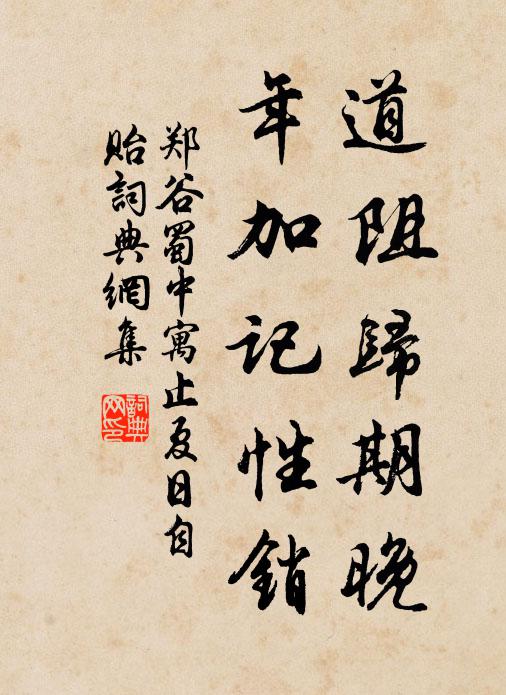 道阻歸期晚
年加记性銷
郑谷蜀中寓止夏日自
贻詞典網集
詞典
网印